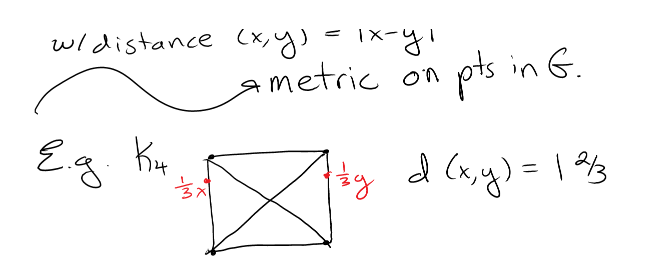 w/distance (x,y) = |x-y|
metric on pts in G.
E.g. K₄
1/3 x
1/3 y
d (x,y) = 1 2/3